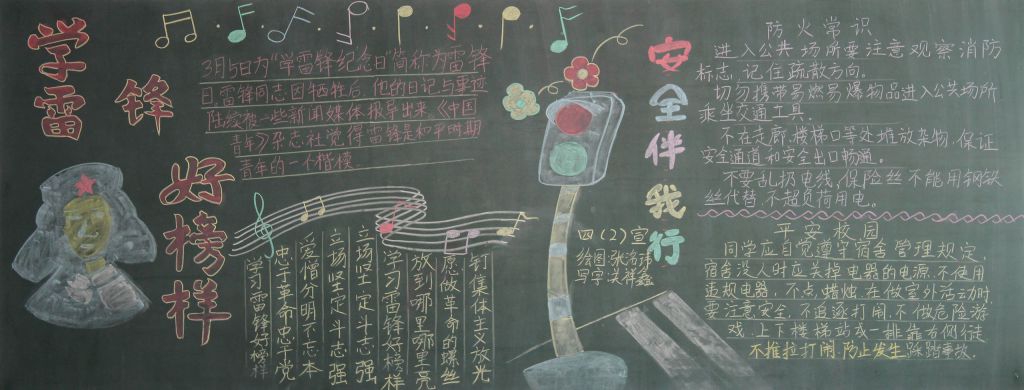 学雷
锋
好榜样
3月5日为“学雷锋纪念日”简称为雷锋
日,雷锋同志因牺牲后,他的日记与事迹
陆续被一些新闻媒体报导出来,《中国
青年》杂志社觉得雷锋是和平时期
青年的一个楷模
学习雷锋好榜样
忠于革命忠于党
爱憎分明不忘本
立场坚定斗志强
立场坚定斗志强
学习雷锋好榜样
放到哪里哪里亮
愿做革命的螺丝
钉集体主义放光
四(2)宣
绘图:张
写字:吴祥鑫
安全伴我行
防火常识
进入公共场所要注意观察消防
标志,记住疏散方向。
切勿携带易燃易爆物品进入公共场所
乘坐交通工具。
不在走廊、楼梯口等处堆放杂物,保证
安全通道和安全出口畅通。
不要乱扔电线,保险丝不能用钢铁
丝代替,不超负荷用电。
平安校园
同学应自觉遵守宿舍管理规定,
宿舍没人时应关掉电器的电源,不使用
违规电器,不点蜡烛。在做室外活动时
要注意安全,不追逐打闹,不做危险游
戏,上下楼梯站成一排靠右侧行走
不推拉打闹,防止发生踩踏事故.